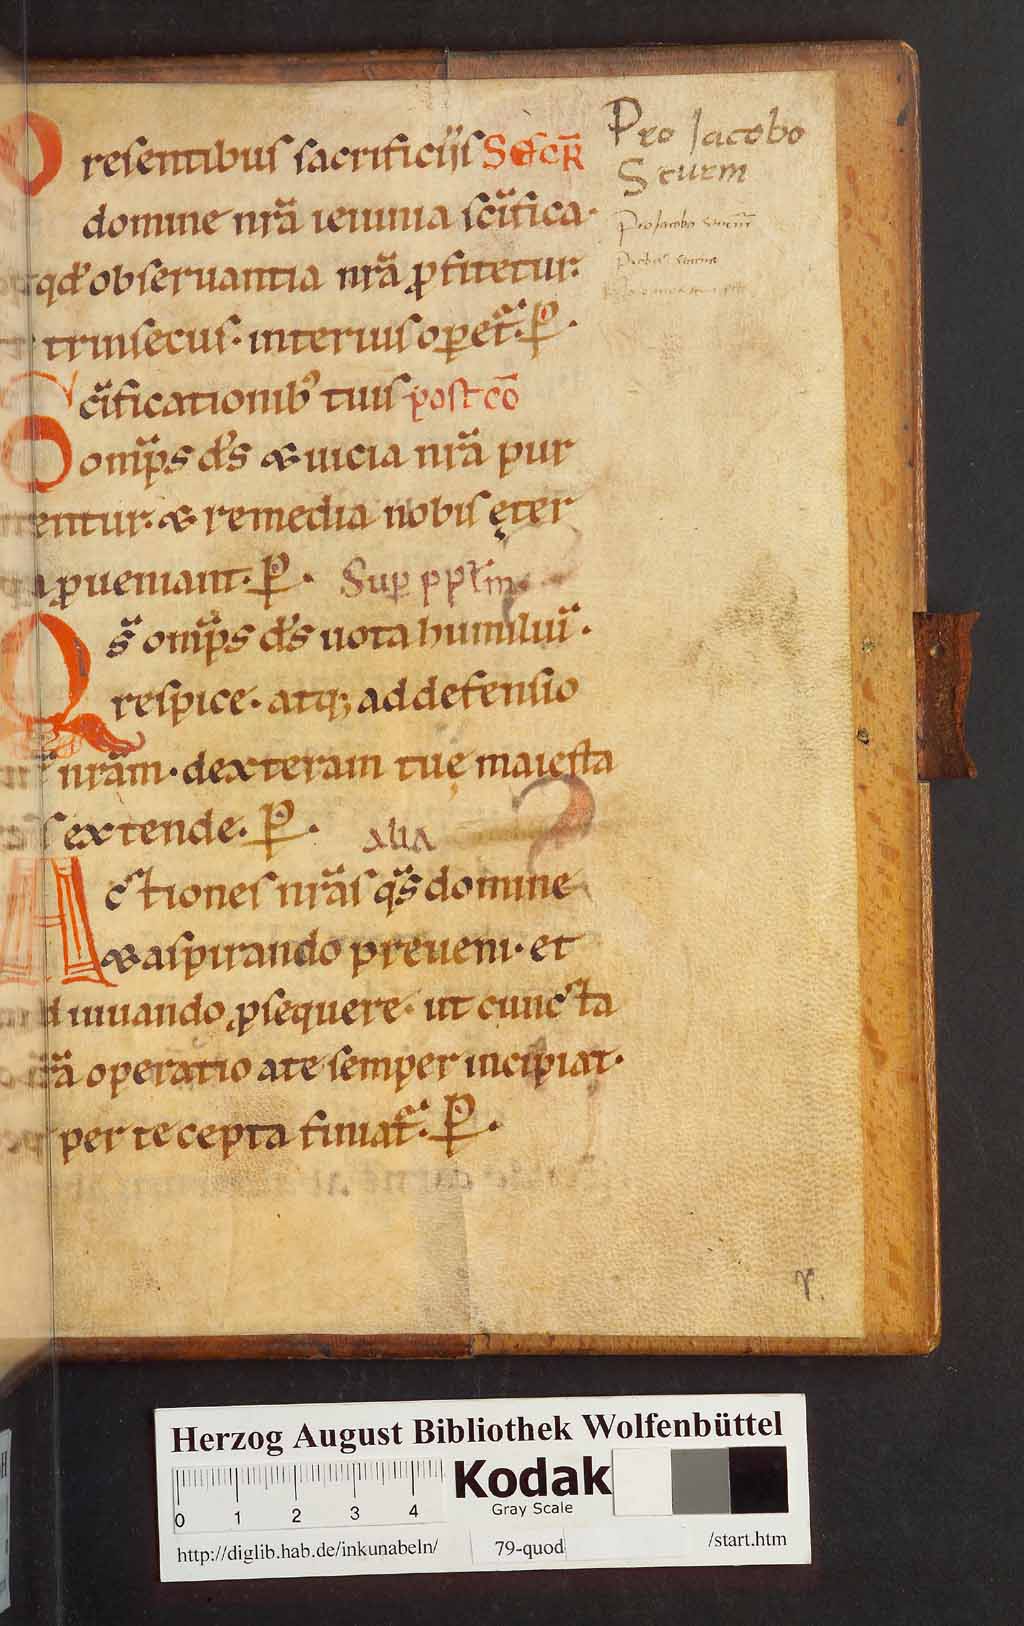 Presentibus sacrificiis Secr̄
domine nr̄a ieiunia sc̄ifica·
qd̓ obseruantia nr̄a ꝓfitetur·
trinsecus· interius oꝑet᷑· P̱·
Sc̄ificationib᷒ tuis post cō
Omīps d̓s & uicia nr̄a pur
entur· & remedia nobis ęter
a ꝓueniant· P̱· Suꝑ ppl̄m
Qs̄ omīps d̓s uota humiliū·
respice· atq; ad defensio
nr̄am· dexteram tuę maiesta
s extende· P̱· alia
Actiones nr̄as qs̄ domine
& aspirando preueni· et
d iuuando ꝓsequere· ut cuncta
r̄a operatio a te semper incipiat·
per te cepta finiat᷑· P̱·
Pro Jacobo
Sturm
Pro Jacobo Sturm
Herzog August Bibliothek Wolfenbüttel
0 1 2 3 4
Kodak
Gray Scale
http://diglib.hab.de/inkunabeln/ 79-quod /start.htm